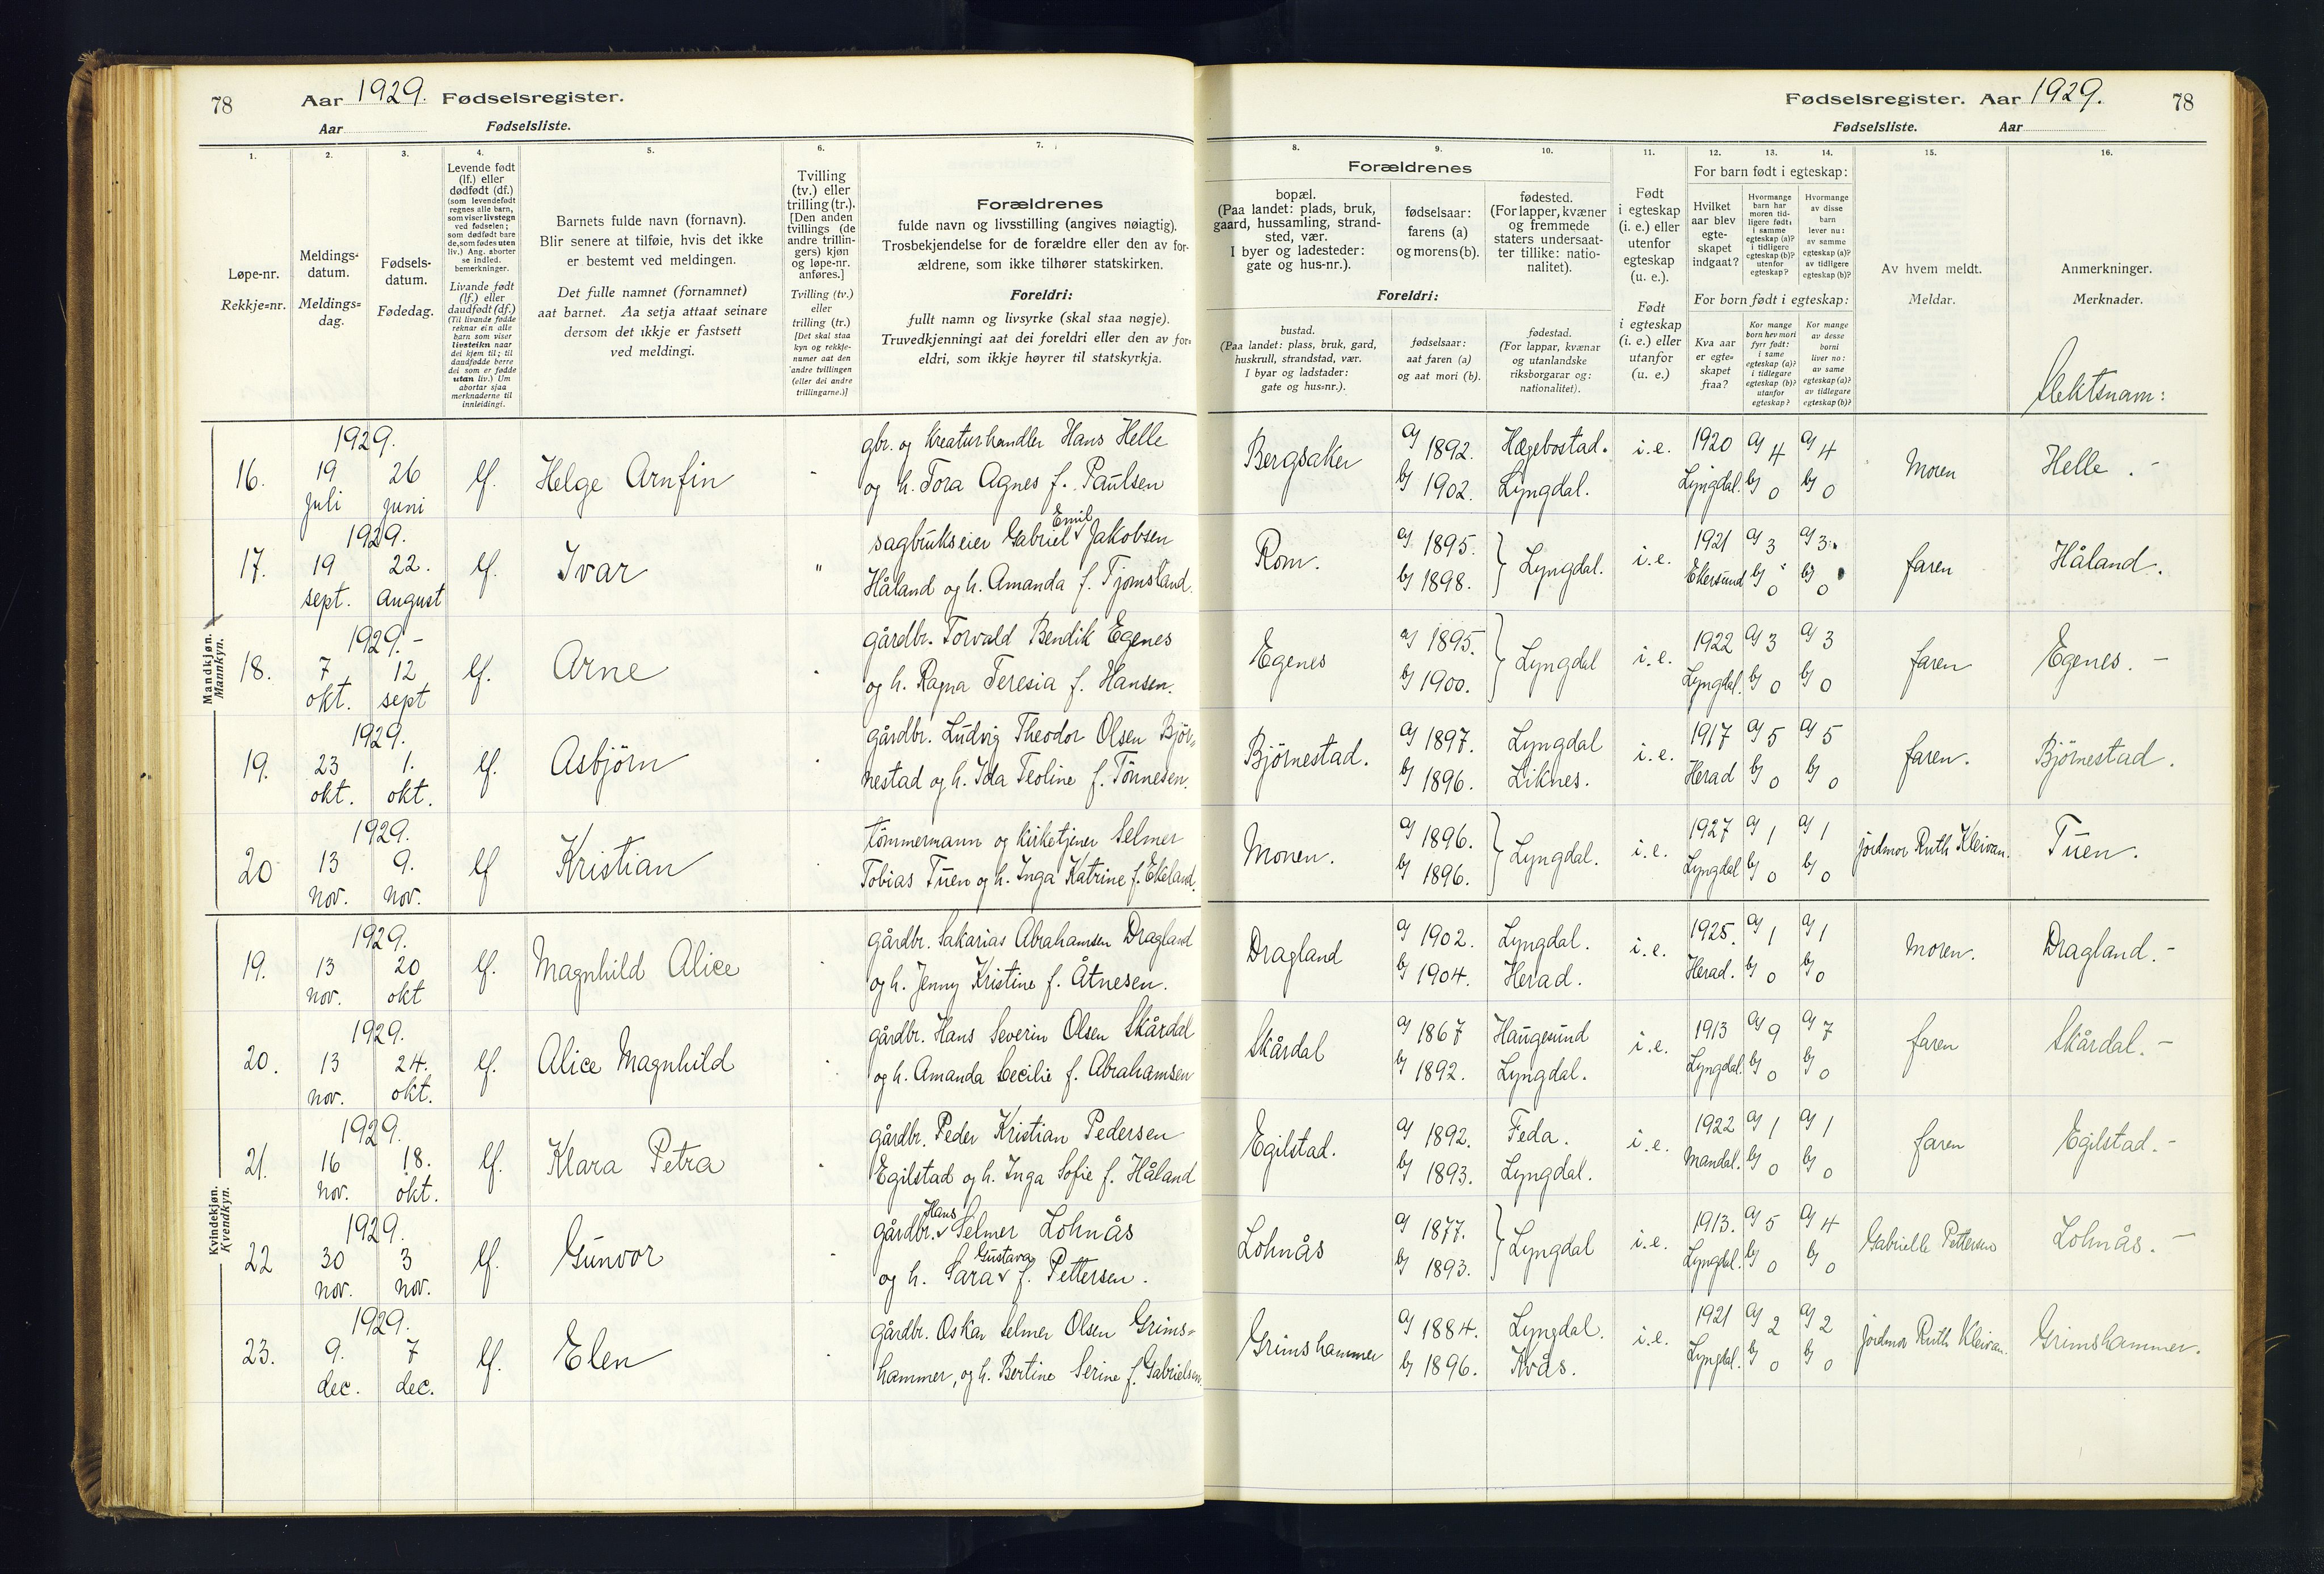 78
Aar 1929. Fødselsregister.
Aar Fødselsliste.
1.
Løpe-nr.
Rekkje=nr.
2.
Meldings-
datum.
Meldings=
dag.
3.
Fødsels-
datum.
Fødedag.
4.
Levende født
(lf.) eller
dødfødt (df.)
(som levendefødt
regnes alle barn,
som viser livstegn
ved fødselen;
som dødfødt bare
de, som fødes uten
liv.) Ang. aborter
se indled.
bemerkninger.
Livande født
(lf.) eller
daudfødt (df.)
(Til livande fødde
reknar ein alle
barn som viser
livsteikn naar
dei kjem til; til
daudfødde berre
dei som er fødde
utan liv.) Um
abortar sjaa
merknaderne til
innleidingi.
5.
Barnets fulde navn (fornavn).
Blir senere at tilføie, hvis det ikke
er bestemt ved meldingen.
Det fulle namnet (fornamnet)
aat barnet. Aa setja attaat seinare
dersom det ikkje er fastsett
ved meldingi.
6.
Tvilling
(tv.) eller
trilling (tr.).
[Den anden
tvillings (de
andre trillin-
gers) kjøn
og løpe-nr.
anføres.]
Tvilling (tv.)
eller
trilling (tr.)
[Det skal staa
kyn og rekkje-
numer aat den
andre tvillingen
(eller dei andre
trillingarne.)]
7.
Forældrenes
fulde navn og livsstilling (angives nøiagtig).
Trosbekjendelse for de forældre eller den av for-
ældrene, som ikke tilhører statskirken.
Foreldri:
fullt namn og livsyrke (skal staa nøgje).
Truvedkjenningi aat dei foreldri eller den av for=
eldri, som ikkje høyrer til statskyrkja.
Mandkjøn.
Mannkyn.
16.
1929.
19 juli
26 juni
lf.
Helge Arnfin
gbr. og kreaturhandler Hans Helle
og h. Tora Agnes f. Paulsen
17.
1929.
19 sept.
22. august
lf.
Ivar
"
sagbrukseier Gabriel Emil Jakobsen
Håland og h. Amanda f. Tjomsland.
18.
1929.-
7 okt.
12 sept
lf.
Arne
gårdbr. Torvald Bendik Egenes
og h. Ragna Teresia f. Hansen.
19.
1929.
23 okt.
1. okt.
lf.
Asbjörn
gårdbr. Ludvig Theodor Olsen Björ=
nestad og h. Ida Teoline f. Tönnesen.
20
1929.
13 nov.
9. nov.
lf
Kristian
tömmermann og kirketjener Selmer
Tobias Tuen og h. Inga Katrine f. Ekeland.
Kvindekjøn.
Kvendkyn.
19.
1929.
13 nov.
20 okt
lf.
Magnhild Alice
gårdbr. Sakarias Abrahamsen Dragland
og h. Jenny Kristine f. Åtnesen.
20.
1929.
13 nov.
24. okt.
lf.
Alice Magnhild
gårdbr. Hans Severin Olsen Skårdal
og h. Amanda Cecilie f. Abrahamsen
21.
1929.
16 nov.
18. okt.
lf.
Klara Petra
gårdbr. Peder Kristian Pedersen
Egilstad og h. Inga Sofie f. Håland
22
1929.
30 nov.
3 nov.
lf.
Gunvor
gårdbr. Hans Selmer Lohnås
og h. Sara Gustava f. Pettersen.
23.
1929.
9. dec.
7 dec.
lf.
Elen
gårdbr. Oskar Selmer Olsen Grims=
hammer, og h. Bertine Serine f. Gabrielsen.
Fødselsregister. Aar 1929. 78
Fødselsliste. Aar
8.
Forældrenes
bopæl.
(Paa landet: plads, bruk,
gaard, hussamling, strand-
sted, vær.
I byer og ladesteder:
gate og hus-nr.).
Foreldri:
bustad.
(Paa landet: plass, bruk, gard,
huskrull, strandstad, vær.
I byar og ladstader:
gate og hus=nr.).
9.
fødselsaar:
farens (a)
og morens (b).
fødselsaar:
aat faren (a)
og aat mori (b).
10.
fødested.
(For lapper, kvæner
og fremmede
staters undersaat-
ter tillike: natio-
nalitet).
fødestad.
(For lappar, kvænar
og utanlandske
riksborgarar og:
nationalitet).
11.
Født
i egteskap
(i. e.) eller
utenfor
egteskap
(u. e.).
Født
i egteskap
(i. e.) eller
utanfor
(u. e.)
12. 13. 14.
For barn født i egteskap:
Hvilket
aar blev
egte-
skapet
indgaat?
Hvormange
barn har
moren tid-
ligere født:
i samme
egteskap (a)?
i tidligere
egteskap (b)?
utenfor
egteskap?
Hvormange
av disse
barn
lever nu:
av samme
egteskap (a)?
av tidligere
egteskap (b)?
For born født i egteskap:
Kva aar
er egte=
skapet
fraa?
Kor mange
born hev mori
fyrr født:
i same
egteskap (a)?
i tidlegare
egteskap (b)?
utanfor
egteskap?
Kor mange
av desse
borni
liver no:
av same
egteskap (a)?
av tidlegare
egteskap (b)?
15.
Av hvem meldt.
Meldar.
16.
Anmerkninger.
Merknader.
Slektsnam:
Bergsaker
a) 1892. Hægebostad.
b) 1902. Lyngdal.
i.e.
1920 Lyngdal.
a) 4 b) 0
a) 4 b) 0
Moren
Helle.-
Rom.
a) 1895.
b) 1898.
Lyngdal.
i.e.
1921 Ekersund
a) 3 b) 0
a) 3 b) 0
faren
Håland.
Egenes
a) 1895.
b) 1900.
Lyngdal
i.e.
1922 Lyngdal.
a) 3 b) 0
a) 3 b) 0
faren
Egenes.-
Björnestad.
a) 1897. Lyngdal
b) 1896. Liknes.
i.e.
1917 Herad
a) 5 b) 0
a) 5 b) 0
faren.
Björnestad.
Monen.
a) 1896.
b) 1896.
Lyngdal.
i.e.
1927 Lyngdal
a) 1 b) 0
a) 1 b) 0
jordmor Ruth Kleivan.
Tuen.
Dragland
a) 1902. Lyngdal.
b) 1904. Herad.
i.e.
1925. Herad.
a) 1 b) 0
a) 1 b) 0
Moren.
Dragland.-
Skårdal
a) 1867 Haugesund
b) 1892. Lyngdal.
i.e.
1913 Lyngdal.
a) 9 b) 0
a) 7 b) 0
faren
Skårdal.-
Egilstad.
a) 1892. Feda.
b) 1893. Lyngdal.
i.e.
1922 Mandal.
a) 1 b) 0
a) 1 b) 0
faren
Egilstad.-
Lohnås
a) 1877.
b) 1893.
Lyngdal
i.e.
1913. Lyngdal.
a) 5 b) 0
a) 4 b) 0
Gabrielle Pettersen
Lohnås.-
Grimshammer
a) 1884. Lyngdal.
b) 1896. Kvås.
i.e.
1921 Lyngdal.
a) 2 b) 0
a) 2 b) 0
jordmor Ruth Kleivan.
Grimshammer.